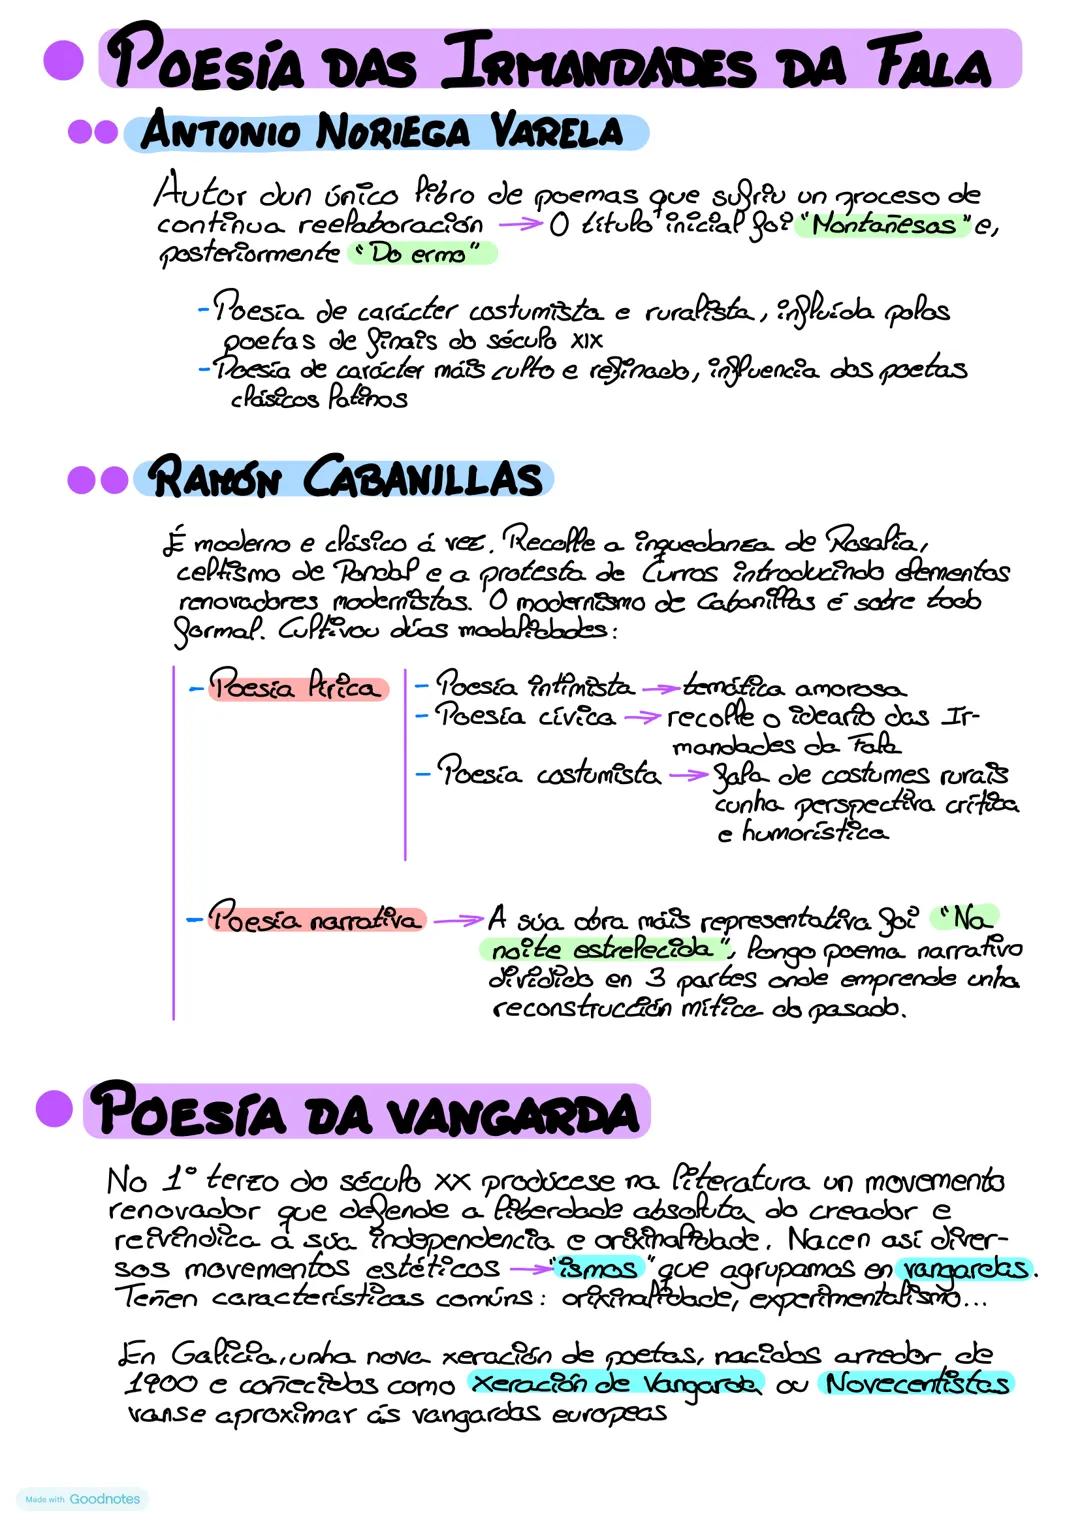 POESÍA DAS IRMANDADES DA FALA
ANTONIO NORIEGA VARELA
Autor dun único libro de poemas que sufriu un proceso de
continua reelaboración → O título inicial foi "Montañesas" e,
posteriormente "Do ermo"
- Poesía de carácter costumista e ruralista, influída polos
poetas de finais do século XIX
- Poesía de carácter máis culto e refinado, influencia dos poetas
clásicos latinos
RAMÓN CABANILLAS
É moderno e clásico á vez. Recolle a inquedanza de Rosalía,
celtismo de Pondal e a protesta de Curros introducindo elementos
renovadores modernistas. O modernismo de Cabanillas é sobre todo
formal. Cultivou dúas modalidades:
- Poesía lírica
- Poesía intimista → temática amorosa
- Poesía cívica → recolle o ideario das Ir-
mandades da Fala
- Poesía costumista → fala de costumes rurais
cunha perspectiva crítica
e humorística
- Poesía narrativa → A súa obra máis representativa foi "Na
noite estrelecida", longo poema narrativo
dividido en 3 partes onde emprende unha
reconstrucción mítica do pasado.
POESÍA DA VANGARDA
No 1º terzo do século XX prodúcese na literatura un movemento
renovador que defende a liberdade absoluta do creador e
reivindica a súa independencia e orixinalidade. Nacen así diver-
sos movementos estéticos → "ismos" que agrupamos en vangardas.
Teñen características comúns: orixinalidade, experimentalismo...
En Galicia, unha nova xeración de poetas, nacidos arredor de
1900 e coñecidos como xeración de Vangarda ou Novecentistas
vanse aproximar ás vangardas europeas
Made with Goodnotes